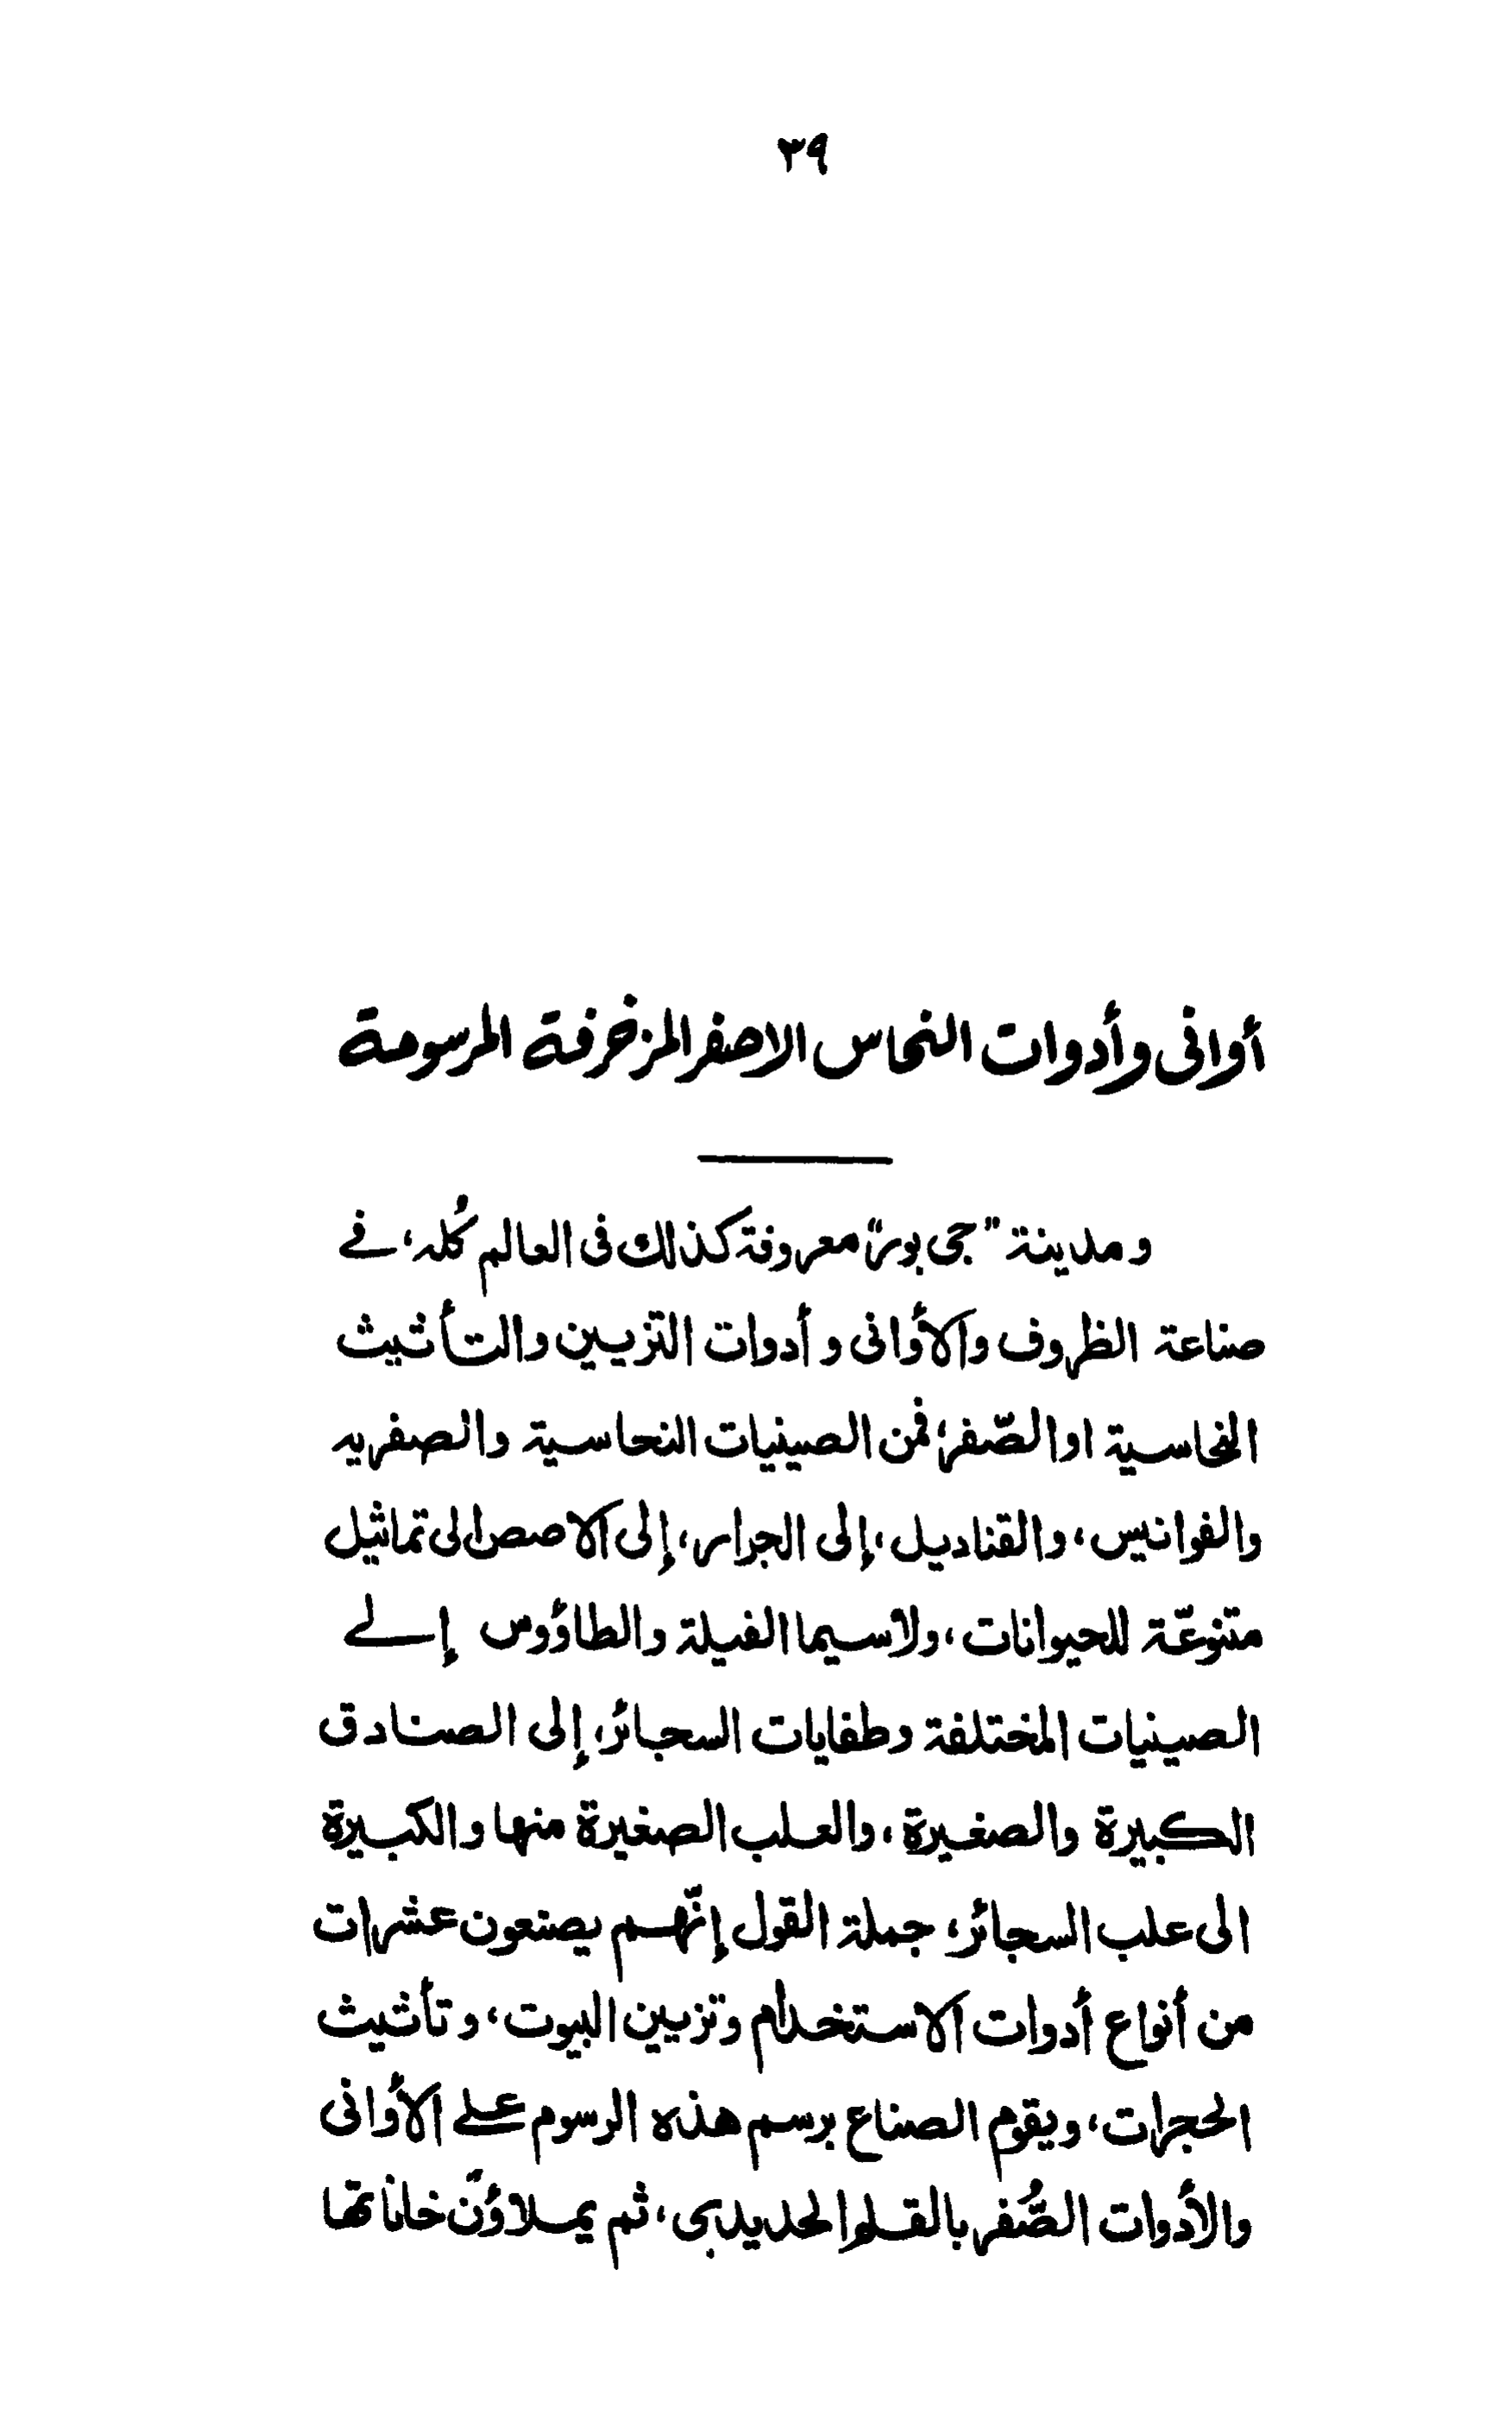 ٣٩
أوانى وأدوات النحاس الاصفر المزخرفة المرسومة
ومدينة "جى بور" معروفة كذلك فى العالم كُله، فے
صناعة الظروف والأوانى و أدوات التزيين والتأثيث
النحاسية او الصّفر، فمن الصينيات النحاسية والصفريه
والفوانيس، والقناديل، إلى الجرار، إلى الاصص الى تماثيل
متنوعّة للحيوانات، ولاسيما الفيلة والطاؤوس إلے
الصينيات المختلفة وطفايات السجائر، إلى الصنادق
الكبيرة والصغيرة، والعلب الصغيرة منها والكبيرة
الى علب السجائر، جملة القول إنّهم يصنعون عشرات
من أنواع أدوات الاستخدام وتزيين البيوت، وتأثيث
الحجرات، ويقوم الصناع برسم هذه الرسوم علے الأوانى
والأدوات الصُّفر بالقلم الحديدى، ثم يملاؤن خاناتها